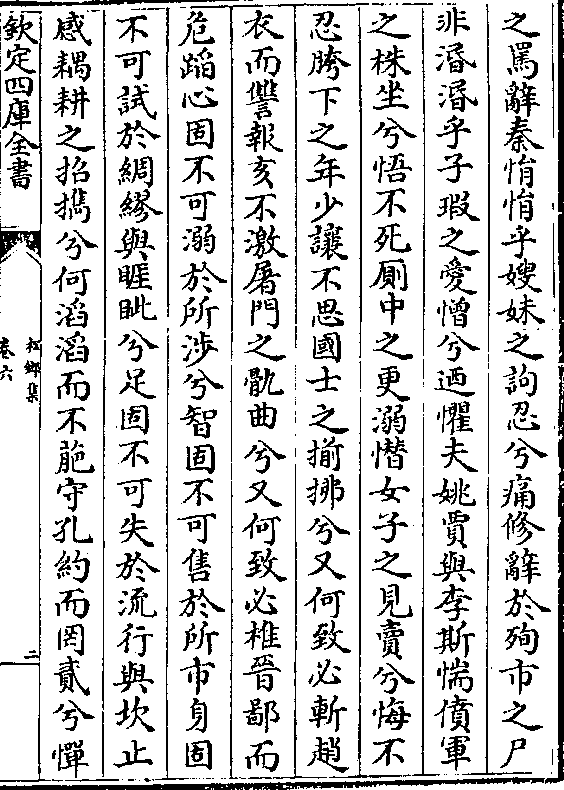 之罵辭秦悁悁乎嫂妹之訽忍兮痛修辭於殉市之尸
非湣湣乎子瑕之愛憎兮迺懼夫姚賈與李斯惴僨軍
之株坐兮悟不死厠中之更溺憯女子之見賣兮悔不
忍胯下之年少讓不思國士之揃拂兮又何致必斬趙
衣而讐報亥不激屠門之骩曲兮又何致必椎晉鄙而
危蹈心固不可溺於所涉兮智固不可售於所市身固
不可試於綢繆與睚眦兮足固不可失於流行與坎止
感耦耕之招擕兮何滔滔而不葩守孔約而罔貳兮憚
欽定四庫全書
松鄉集
卷六
二